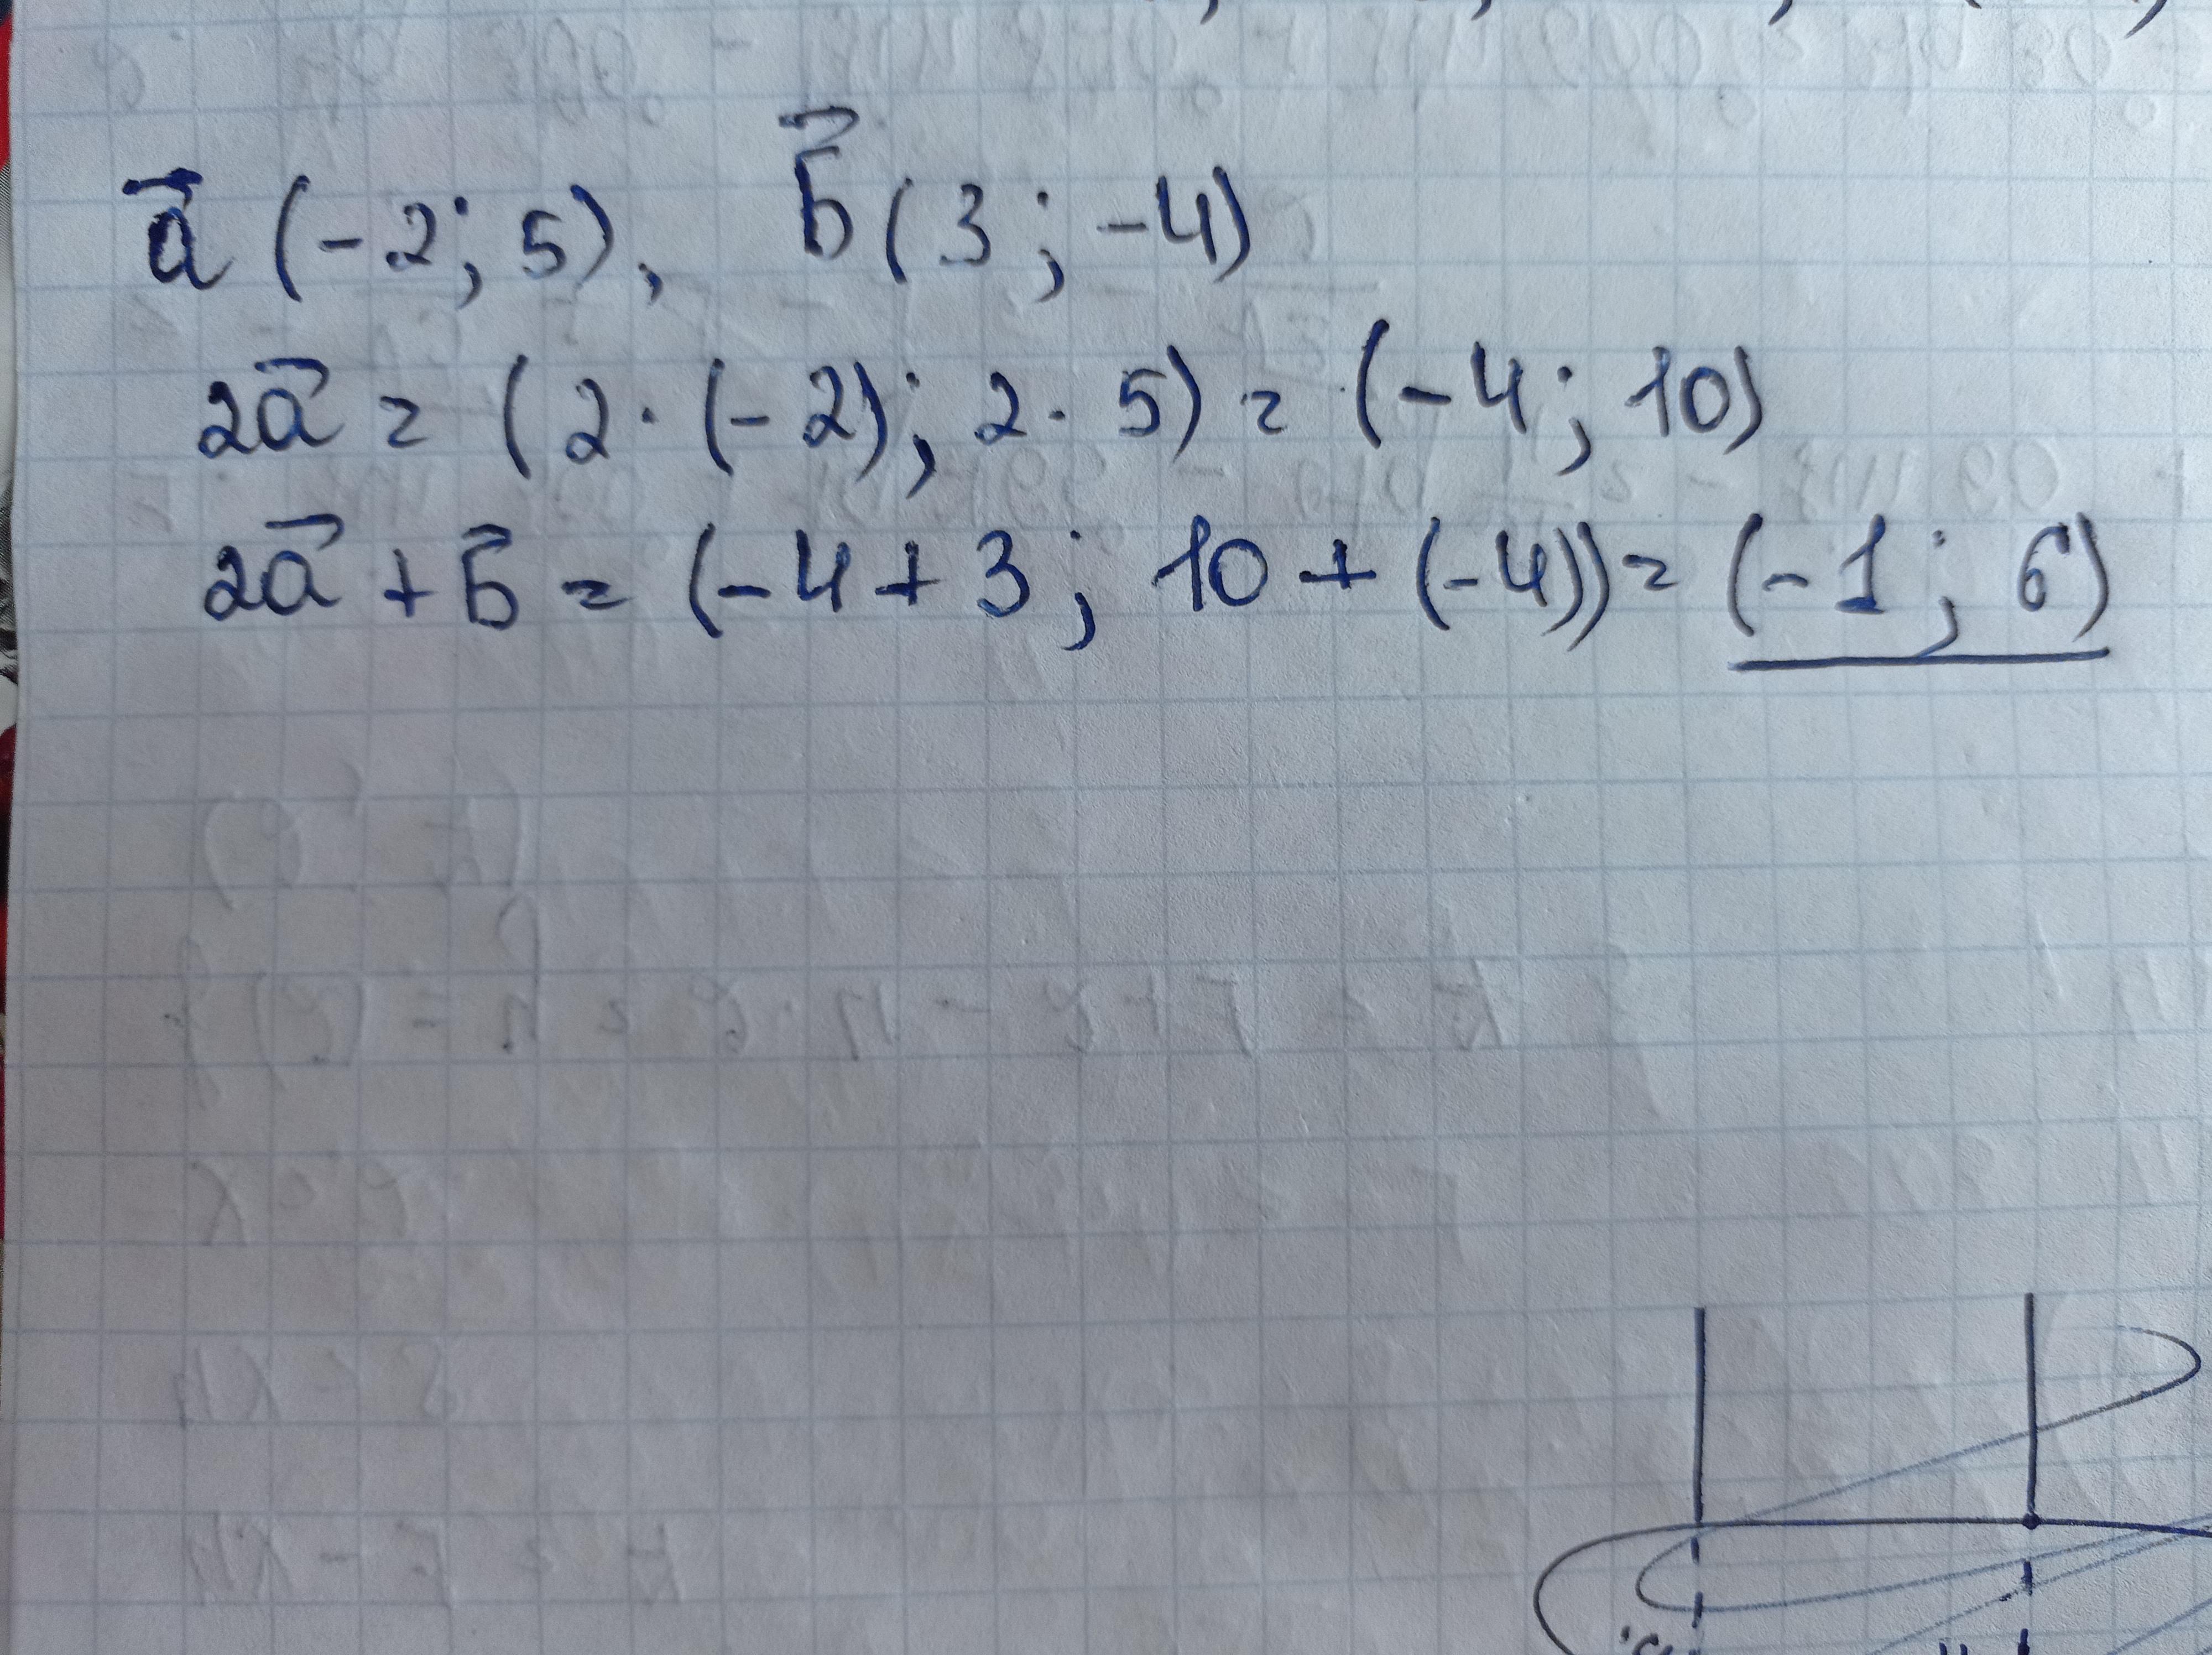 a⃗ (-2; 5), b⃗ (3; -4)
2a⃗ = (2 · (-2); 2 · 5) = (-4; 10)
2a⃗ + b⃗ = (-4 + 3; 10 + (-4)) = (-1; 6)